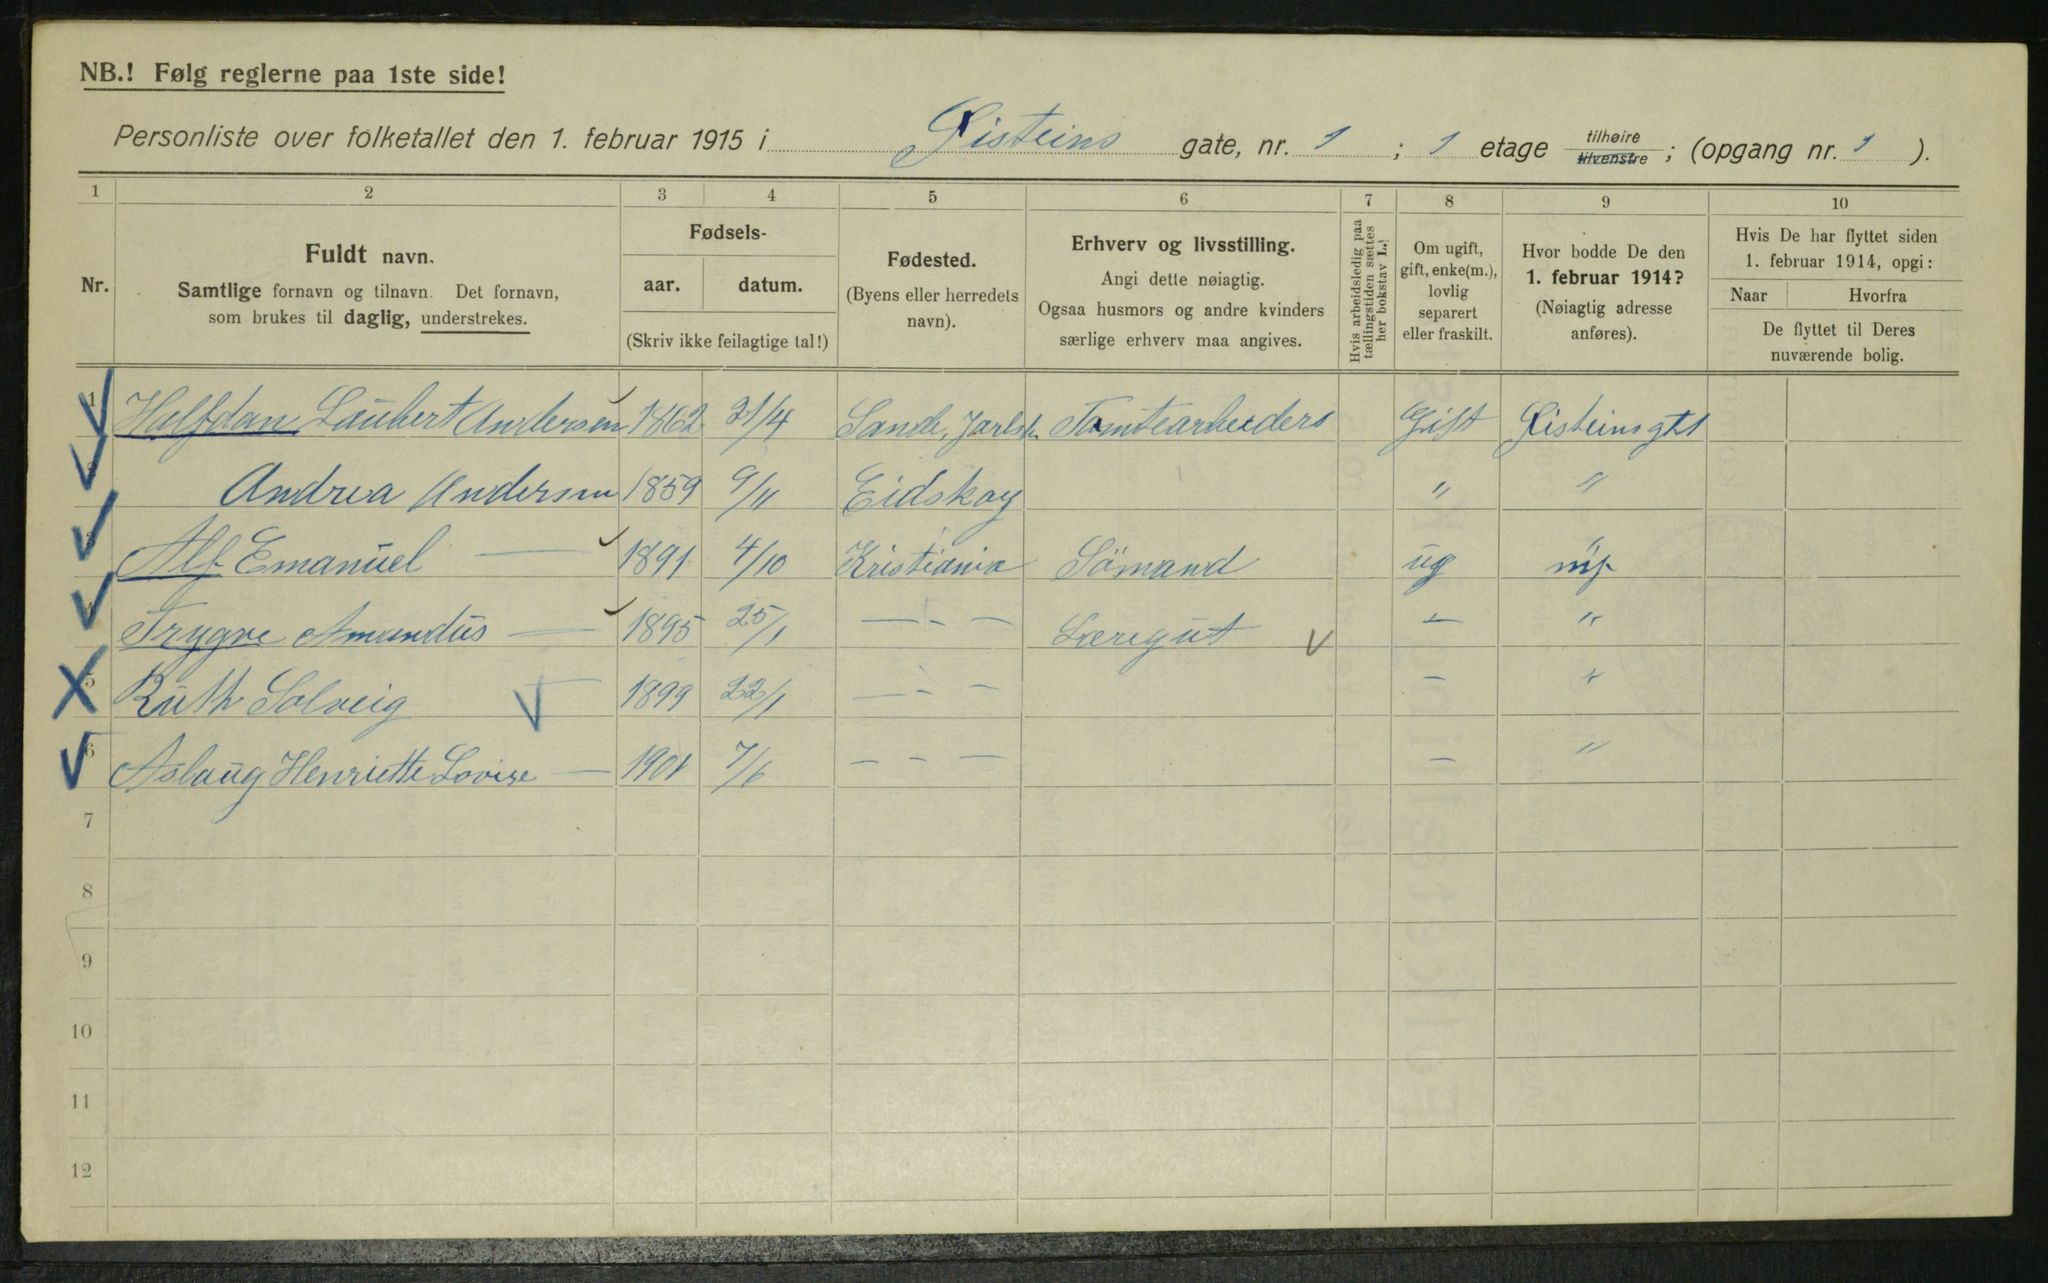 NB.! Følg reglerne paa 1ste side!
Personliste over folketallet den 1. februar 1915 i Øisteins gate, nr. 1 ; 1 etage tilhøire tilvenstre ; (opgang nr. 1 ).
1 2 3 4 5 6 7 8 9 10
Nr.
Fuldt navn.
Samtlige fornavn og tilnavn. Det fornavn,
som brukes til daglig, understrekes.
Fødsels-
aar. datum.
(Skriv ikke feilagtige tal!)
Fødested.
(Byens eller herredets
navn).
Erhverv og livsstilling.
Angi dette nøiagtig.
Ogsaa husmors og andre kvinders
særlige erhverv maa angives.
Hvis arbeidsledig paa
tællingstiden sættes
her bokstav L.!
Om ugift,
gift, enke(m.),
lovlig
separert
eller fraskilt.
Hvor bodde De den
1. februar 1914?
(Nøiagtig adresse
anføres).
Hvis De har flyttet siden
1. februar 1914, opgi:
Naar Hvorfra
De flyttet til Deres
nuværende bolig.
1 Halfdan Laubert Andersen 1862 21/4 Sande, Jarlsb. Tomtearbeiders Gift Øisteinsgt 1
2 Andrea Andersen 1859 9/11 Eidskog " "
3 Alf Emanuel — 1891 4/10 Kristiania Sömand ug "
4 Trygve Amandus — 1895 25/1 — - — Læregut — "
5 Ruth Solveig — 1899 22/1 — - — - "
6 Aslaug Henriette Lovise — 1901 7/6 — - — - "
7
8
9
10
11
12